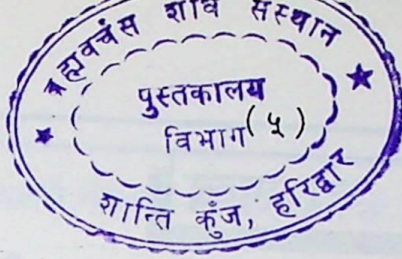 ब्रह्मवर्चस शोध संस्थान
पुस्तकालय
विभाग (५)
शान्ति कुँज, हरिद्वार